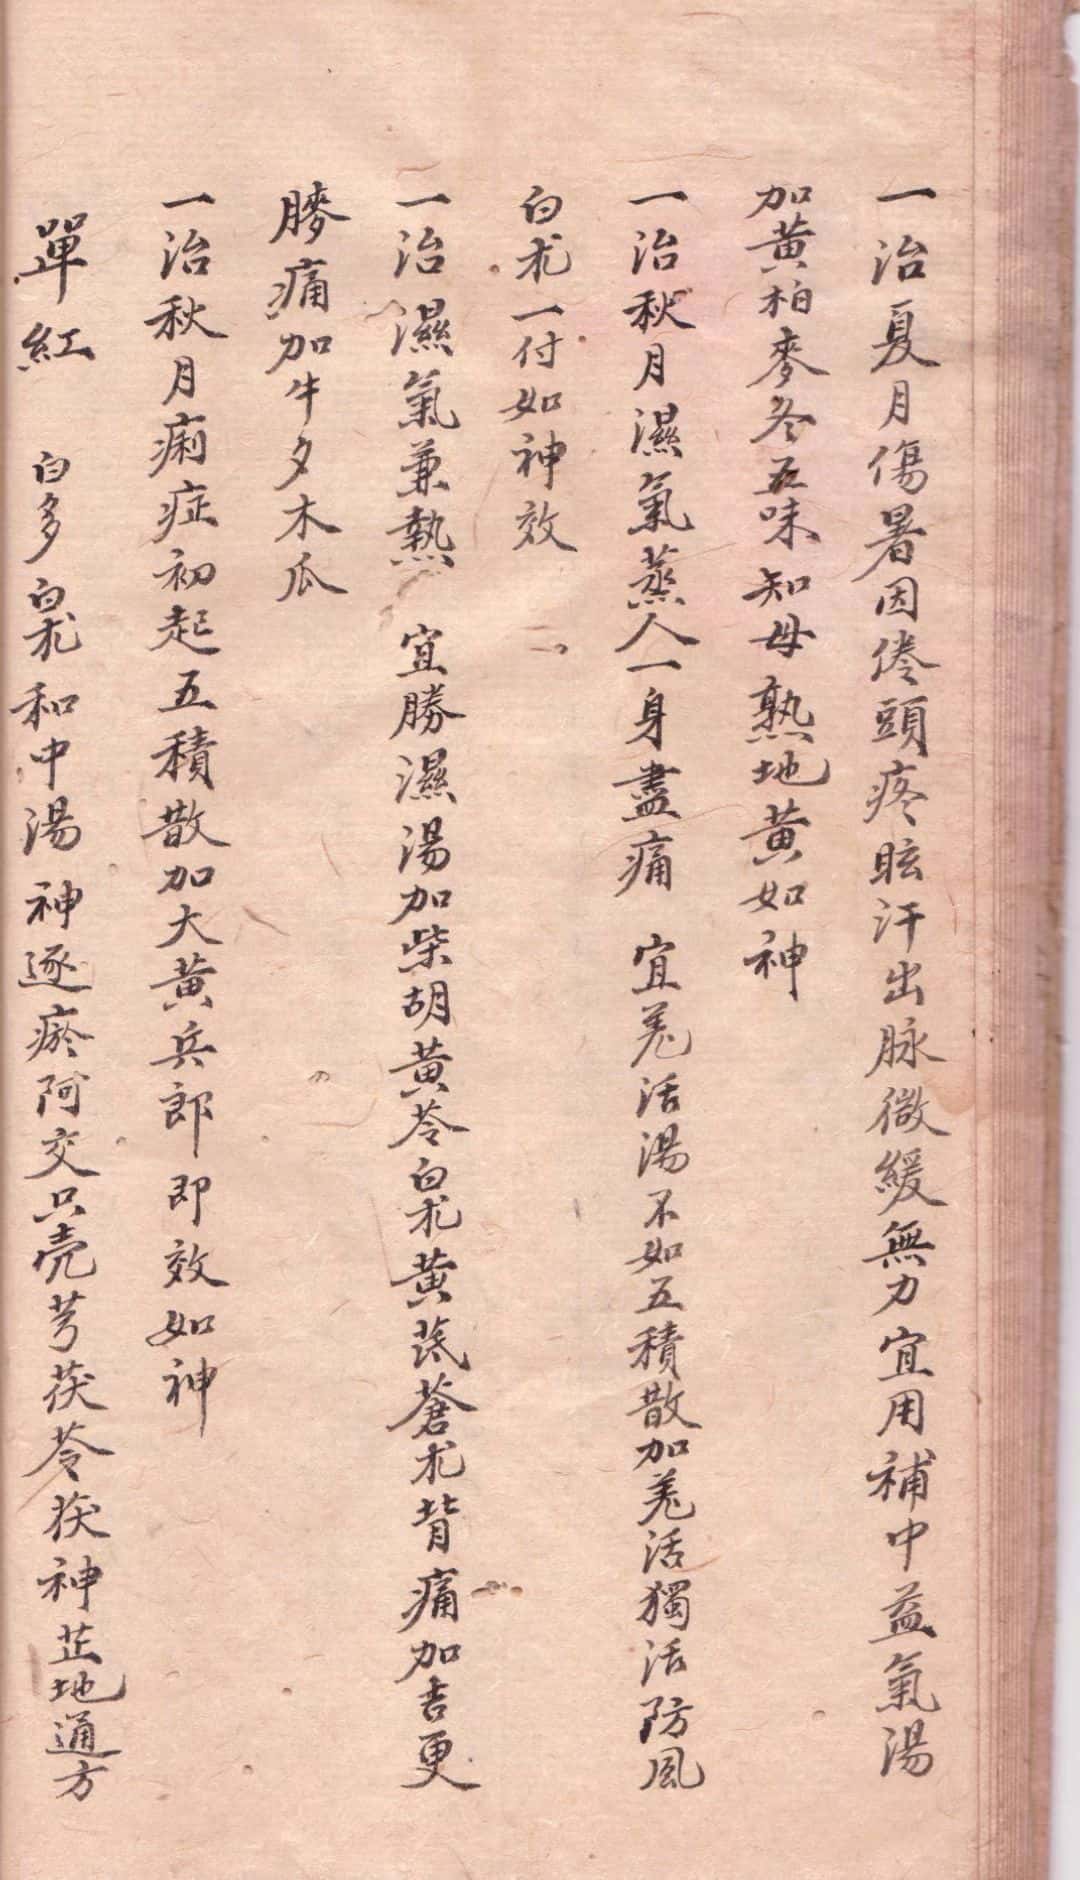 一治夏月傷暑因倦頭疼眩汗出脉微緩無力宜用補中益氣湯
加黄柏麥冬五味知母熟地黄如神
一治秋月濕氣蒸人一身盡痛 宜羗活湯不如五積散加羗活獨活防風
白朮一付如神效
一治濕氣兼熱 宜勝濕湯加柴胡黄芩白朮黄茋蒼朮背痛加吉更
膝痛加牛夕木瓜
一治秋月痢症初起五積散加大黄兵郎即效如神
單紅 白多白朮和中湯神逐瘀阿交只壳芎茯苓茯神芷地通方